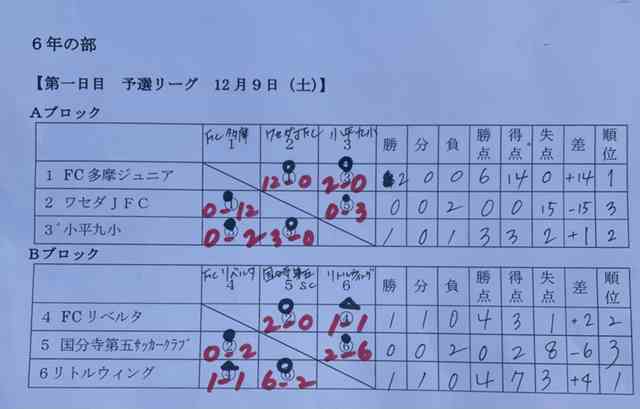 ６年の部
【第一日目　予選リーグ　12月９日（土）】
Ａブロック
FC多摩 1 ワセダJFC 2 小平九小 3 勝 分 負 勝点 得点 失点 差 順位
1 FC多摩ジュニア ① 12-0 ③ 2-0 2 0 0 6 14 0 +14 1
2 ワセダＪＦＣ ① 0-12 ⑤ 0-3 0 0 2 0 0 15 -15 3
3 小平九小 ③ 0-2 ⑤ 3-0 1 0 1 3 3 2 +1 2
Ｂブロック
FCリベルタ 4 国分寺第五SC 5 リトルウィング 6 勝 分 負 勝点 得点 失点 差 順位
4 FCリベルタ ② 2-0 ④ 1-1 1 1 0 4 3 1 +2 2
5 国分寺第五ｻｯｶｰｸﾗﾌﾞ ② 0-2 ⑥ 2-6 0 0 2 0 2 8 -6 3
6リトルウィング 1-1 ⑥ 6-2 1 1 0 4 7 3 +4 1